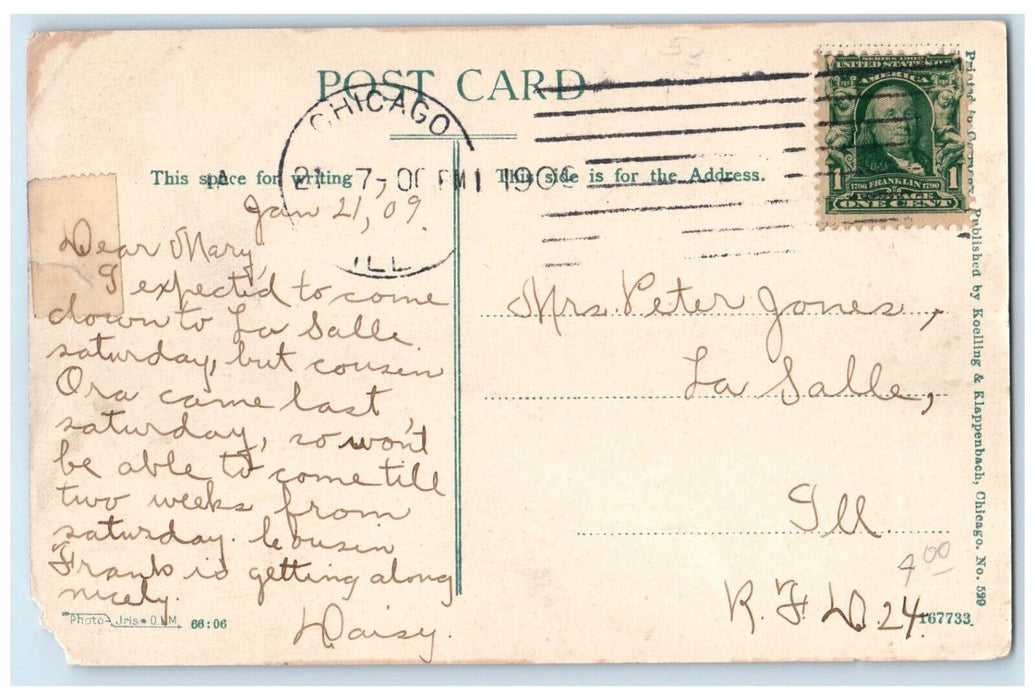 POST CARD
CHICAGO
ILL
21 7-
PM
This space for writing
This side is for the Address.
SERIES 1902
UNITED STATES
AMERICA
1706 FRANKLIN 1790
1 1
POSTAGE
ONE CENT
Jan 21, 09.
Dear Mary,
I expected to come
down to La Salle
saturday, but cousin
Ora came last
saturday, so won't
be able to come till
two weeks from
saturday. Cousin
Frank is getting along
nicely.
Daisy.
Mrs. Peter Jones,
La Salle,
Ill.
R.F.D. 24.
4 00
5
Photo-Jris* O.LM. 66:06
167733.
Printed in Germany. Published by Koelling & Klappenbach, Chicago. No. 529